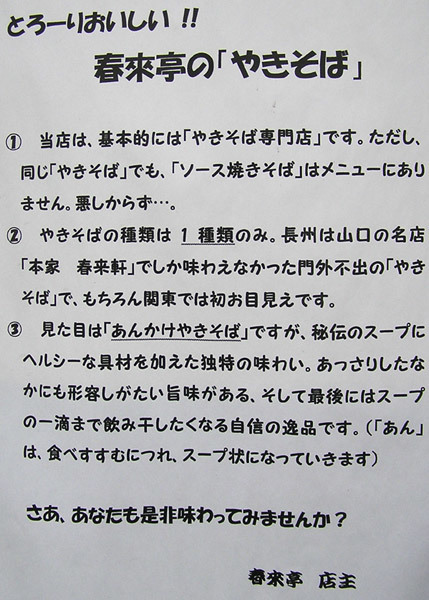 とろーりおいしい!!
春來亭の「やきそば」
① 当店は、基本的には「やきそば専門店」です。ただし、
同じ「やきそば」でも、「ソース焼きそば」はメニューにあり
ません。悪しからず…。
② やきそばの種類は 1 種類のみ。長州は山口の名店
「本家 春来軒」でしか味わえなかった門外不出の「やき
そば」で、もちろん関東では初お目見えです。
③ 見た目は「あんかけやきそば」ですが、秘伝のスープに
ヘルシーな具材を加えた独特の味わい。あっさりしたな
かにも形容しがたい旨味がある、そして最後にはスープ
の一滴まで飲み干したくなる自信の逸品です。(「あん」
は、食べすすむにつれ、スープ状になっていきます)
さあ、あなたも是非味わってみませんか?
春來亭 店主